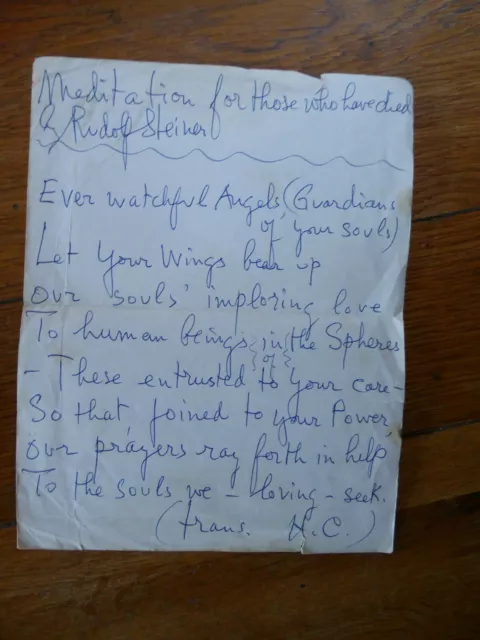 Meditation for those who have died
by Rudolf Steiner
Ever watchful Angels, (Guardians
of your souls)
Let Your Wings bear up
our souls' imploring love
To human beings {in the Spheres
{of}
- These entrusted to your care -
So that, joined to your Power,
our prayers ray forth in help
To the souls we - loving - seek.
(trans. H.C.)